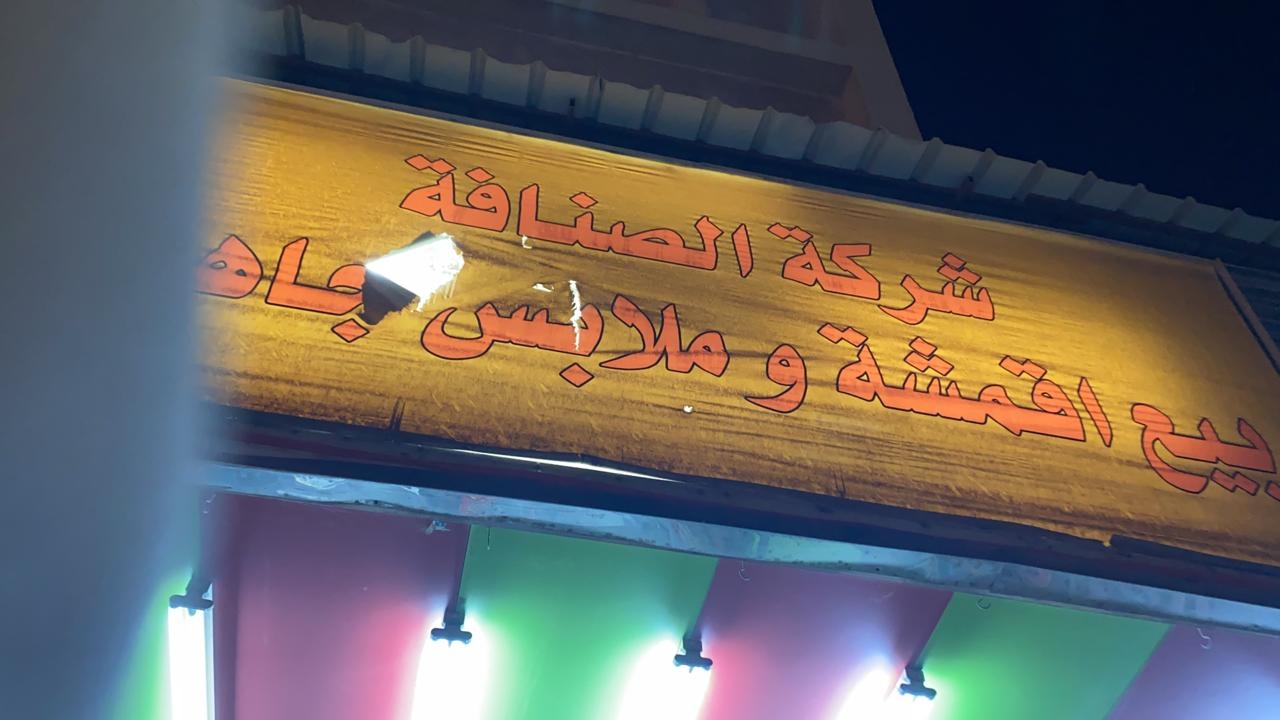 شركة الصنافة
بيع اقمشة و ملابس